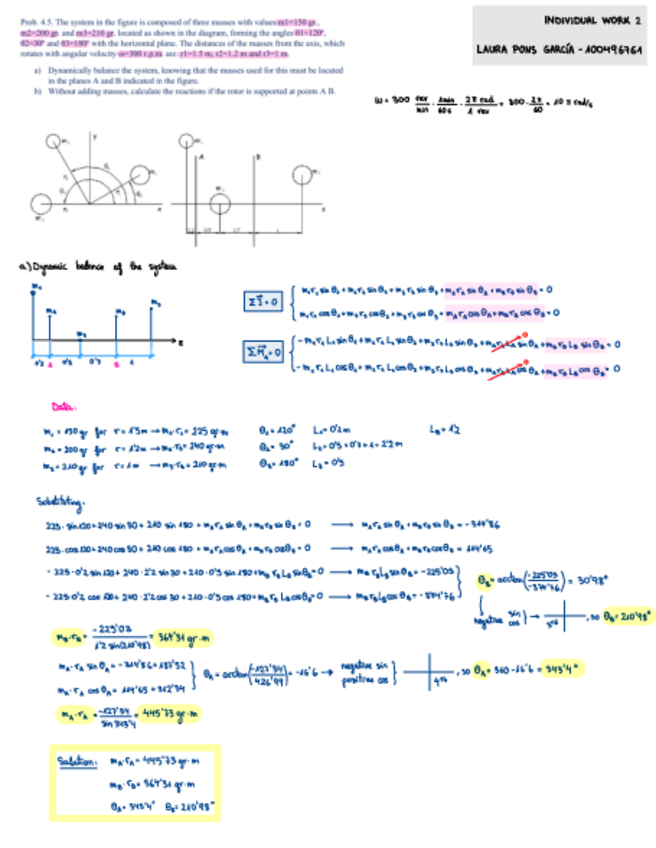 Prob. 4.5. The system in the figure is composed of three masses with values m1=150 gr.,
m2=200 gr. and m3=210 gr. located as shown in the diagram, forming the angles θ1=120°,
θ2=30° and θ3=180° with the horizontal plane. The distances of the masses from the axis, which
rotates with angular velocity ω=300 r.p.m. are: r1=1.5 m, r2=1.2 m and r3=1 m.
a) Dynamically balance the system, knowing that the masses used for this must be located
in the planes A and B indicated in the figure.
b) Without adding masses, calculate the reactions if the rotor is supported at points A B.
INDIVIDUAL WORK 2
LAURA PONS GARCÍA - 100496761
ω = 300 rev/min · 1min/60s · 2π rad/1 rev = 300 · 2π/60 = 10 π rad/s
a) Dynamic balance of the system
m₁r₁ sin θ₁ + m₂r₂ sin θ₂ + m₃r₃ sin θ₃ + m_A r_A sin θ_A + m_B r_B sin θ_B = 0
m₁r₁ cos θ₁ + m₂r₂ cos θ₂ + m₃r₃ cos θ₃ + m_A r_A cos θ_A + m_B r_B cos θ_B = 0
Data:
m₁ = 150 gr for r = 1'5m → m₁·r₁ = 225 gr·m θ₁ = 120° L₁ = 0'2m L_B = 1'2
m₂ = 200 gr for r = 1'2m → m₂·r₂ = 240 gr·m θ₂ = 30° L₂ = 0'5+0'7+1 = 2'2m
m₃ = 210 gr for r = 1m → m₃·r₃ = 210 gr·m θ₃ = 180° L₃ = 0'5
Substituting:
225·sin 120 + 240 sin 30 + 210 sin 180 + m_A r_A sin θ_A + m_B r_B sin θ_B = 0 → m_A r_A sin θ_A + m_B r_B sin θ_B = -314'86
225·cos 120 + 240 cos 30 + 210 cos 180 + m_A r_A cos θ_A + m_B r_B cos θ_B = 0 → m_A r_A cos θ_A + m_B r_B cos θ_B = 114'65
-225·0'2 sin 120 + 240·2'2 sin 30 + 210·0'5 sin 180 + m_B r_B L_B sin θ_B = 0 → m_B r_B L_B sin θ_B = -225'03
-225·0'2 cos 120 + 240·2'2 cos 30 + 210·0'5 cos 180 + m_B r_B L_B cos θ_B = 0 → m_B r_B L_B cos θ_B = -374'76
θ_B = arctan(-225'03/-374'76) = 30'98°
negative sin cos → , so θ_B = 210'98°
m_B·r_B = -225'03 / 1'2 sin(210'98) = 364'31 gr·m
θ_A = arctan(-127'34/426'99) = -16'6 → negative sin positive cos , so θ_A = 360 - 16'6 = 343'4°
m_A·r_A = -127'34 / sin 343'4 = 445'73 gr·m
Solution: m_A·r_A = 445'73 gr·m
m_B·r_B = 364'31 gr·m
θ_A = 343'4° θ_B = 210'98°